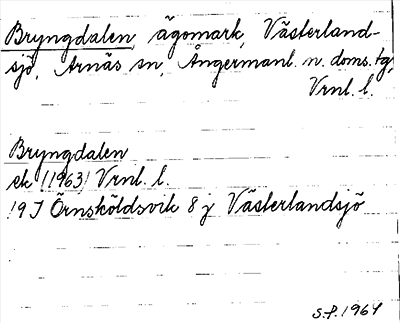 Bryngdalen, ägomark, Västerland-
sjö, Arnäs sn, Ångermanl. n. doms. tg,
Vrnl. l.
Bryngdalen
ek (1963) Vrnl. l.
19 J Örnsköldsvik 8 j Västerlandsjö
S.P. 1964